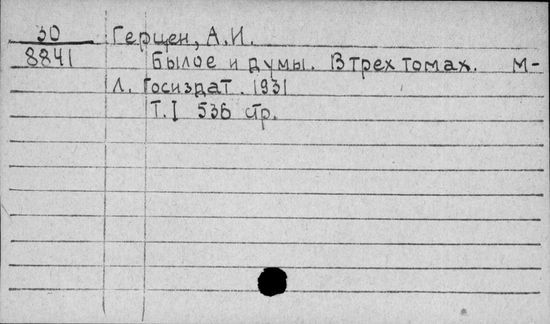 30 Герцен, А.И.
8841 Былое и думы. В трех томах. М-
Л. Госиздат. 1931
Т.I 536 стр.